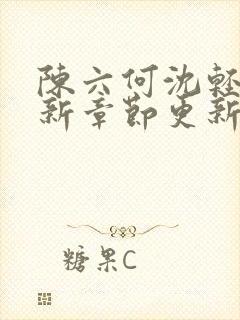 陳六何沈輕
新章節更新
糖果C